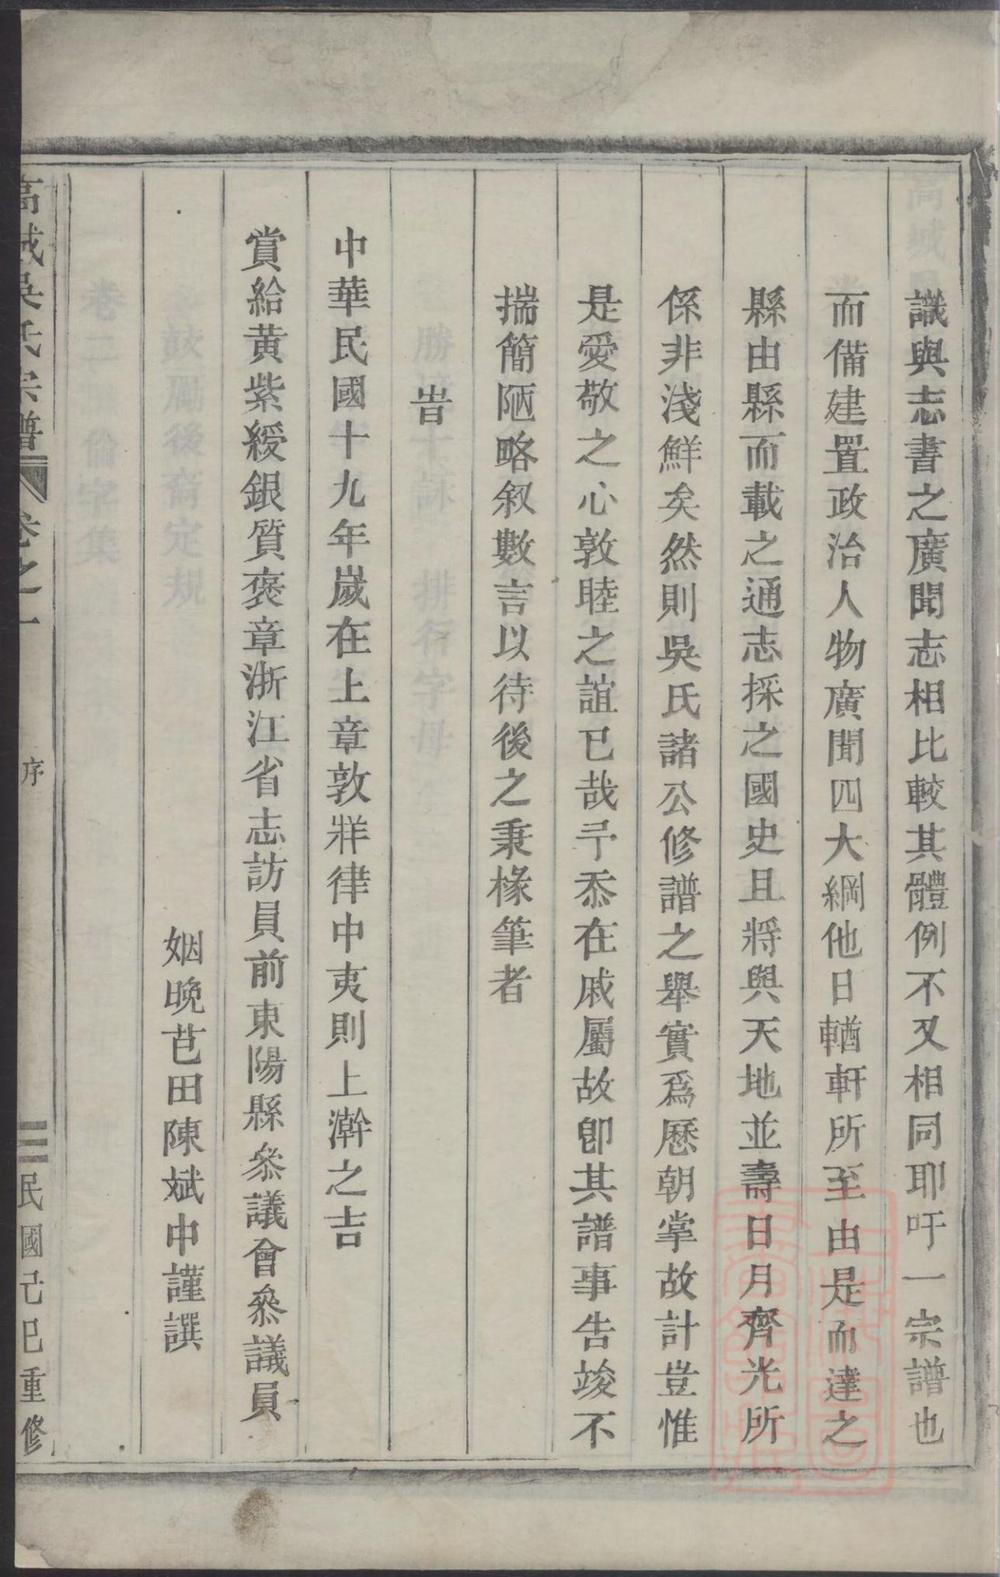 識與志書之廣聞志相比較其體例不又相同耶吁一宗譜也
而備建置政治人物廣聞四大綱他日輶軒所至由是而達之
縣由縣而載之通志採之國史且將與天地並壽日月齊光所
係非淺鮮矣然則吳氏諸公修譜之舉實爲歷朝掌故計豈惟
是愛敬之心敦睦之誼已哉予忝在戚屬故卽其譜事告竣不
揣簡陋略叙數言以待後之秉椽筆者
旹
中華民國十九年歲在上章敦牂律中夷則上澣之吉
賞給黃紫綬銀質褒章浙江省志訪員前東陽縣叅議會叅議員
姻晚芑田陳斌中謹譔
高城吳氏宗譜 卷之一 序 民國己巳重修